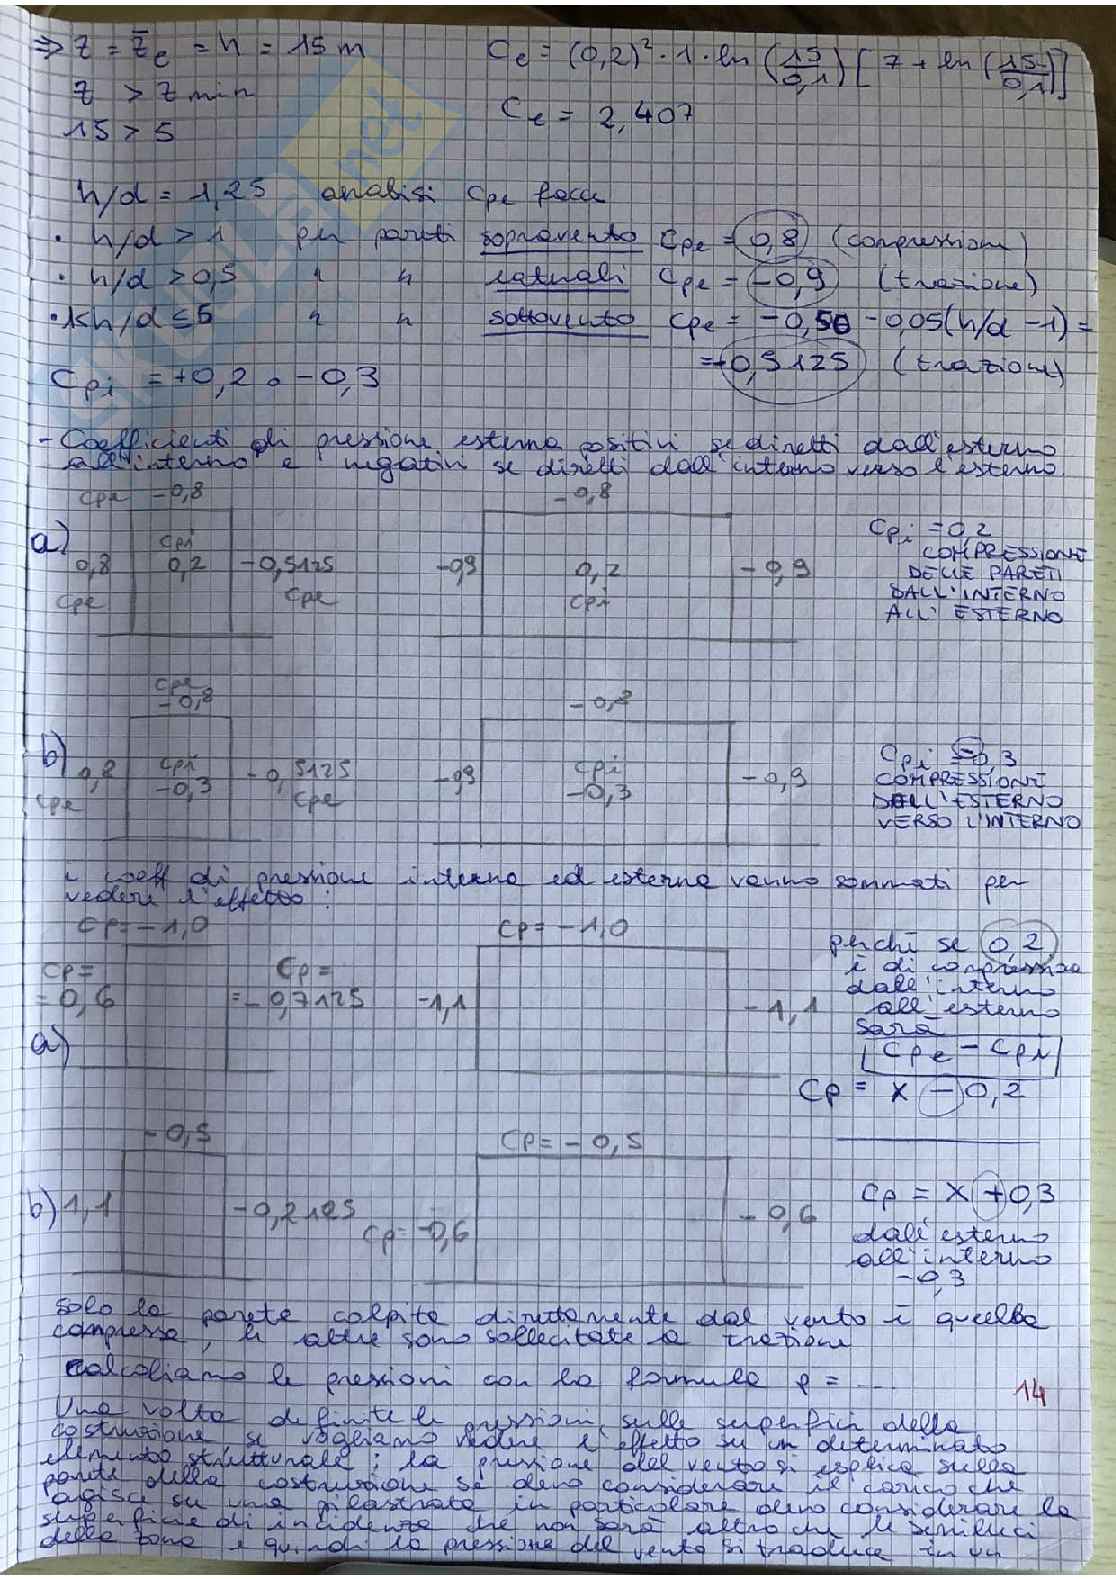 ⇒ z = z̄e = h = 15 m    Ce = (0,2)² · 1 · ln (15/0,1) [7 + ln (15/0,1)]
z > z min
Ce = 2,407
15 > 5
h/d = 1,25 analisi Cpe facce
· h/d > 1 per pareti sopravento Cpe = 0,8 (compressione)
· h/d > 0,5 " " laterali Cpe = -0,9 (trazione)
· 1≤h/d ≤5 " " sottovento Cpe = -0,50 -0,05(h/d -1) =
= -0,5125 (trazione)
Cpi = +0,2 o -0,3
- Coefficienti di pressione esterna positivi se diretti dall'esterno
all'interno e negativi se diretti dall'interno verso l'esterno
Cpe -0,8    -0,8
a)
Cpi
0,8 0,2 -0,5125    -0,9 0,2 -0,9
Cpe Cpe    Cpi
Cpi = 0,2
COMPRESSIONE
DELLE PARETI
DALL'INTERNO
ALL'ESTERNO
Cpe
-0,8    -0,8
b)
0,8 Cpi -0,5125    -0,9 Cpi -0,9
Cpe -0,3 Cpe    -0,3
Cpi = -0,3
COMPRESSIONE
DELL'ESTERNO
VERSO L'INTERNO
i coeff di pressione interna ed esterna vanno sommati per
vedere l'effetto :
Cp = -1,0    Cp = -1,0
Cp =    Cp =
= 0,6    = -0,7125    -1,1    -1,1
a)
perchè se 0,2
è di compressione
dall'interno
all'esterno
sarà
Cpe - Cpi
Cp = x - 0,2
-0,5    Cp = -0,5
b) 1,1    -0,2125    Cp = -0,6    -0,6
Cp = x + 0,3
dall'esterno
all'interno
-0,3
solo la parete colpita direttamente dal vento è quella
compressa, le altre sono sollecitate a trazione
calcoliamo le pressioni con la formula p = ....
14
Una volta definite le pressioni sulle superfici della
costruzione se vogliamo vedere l'effetto su un determinato
elemento strutturale : la pressione del vento si esplica sulla
parete della costruzione se devo considerare il carico che
agisce su una pilastrata in particolare devo considerare la
superficie di incidenza che non sarà altro che le semiluci
della zona e quindi la pressione del vento si traduce in un
SKUOLA.net